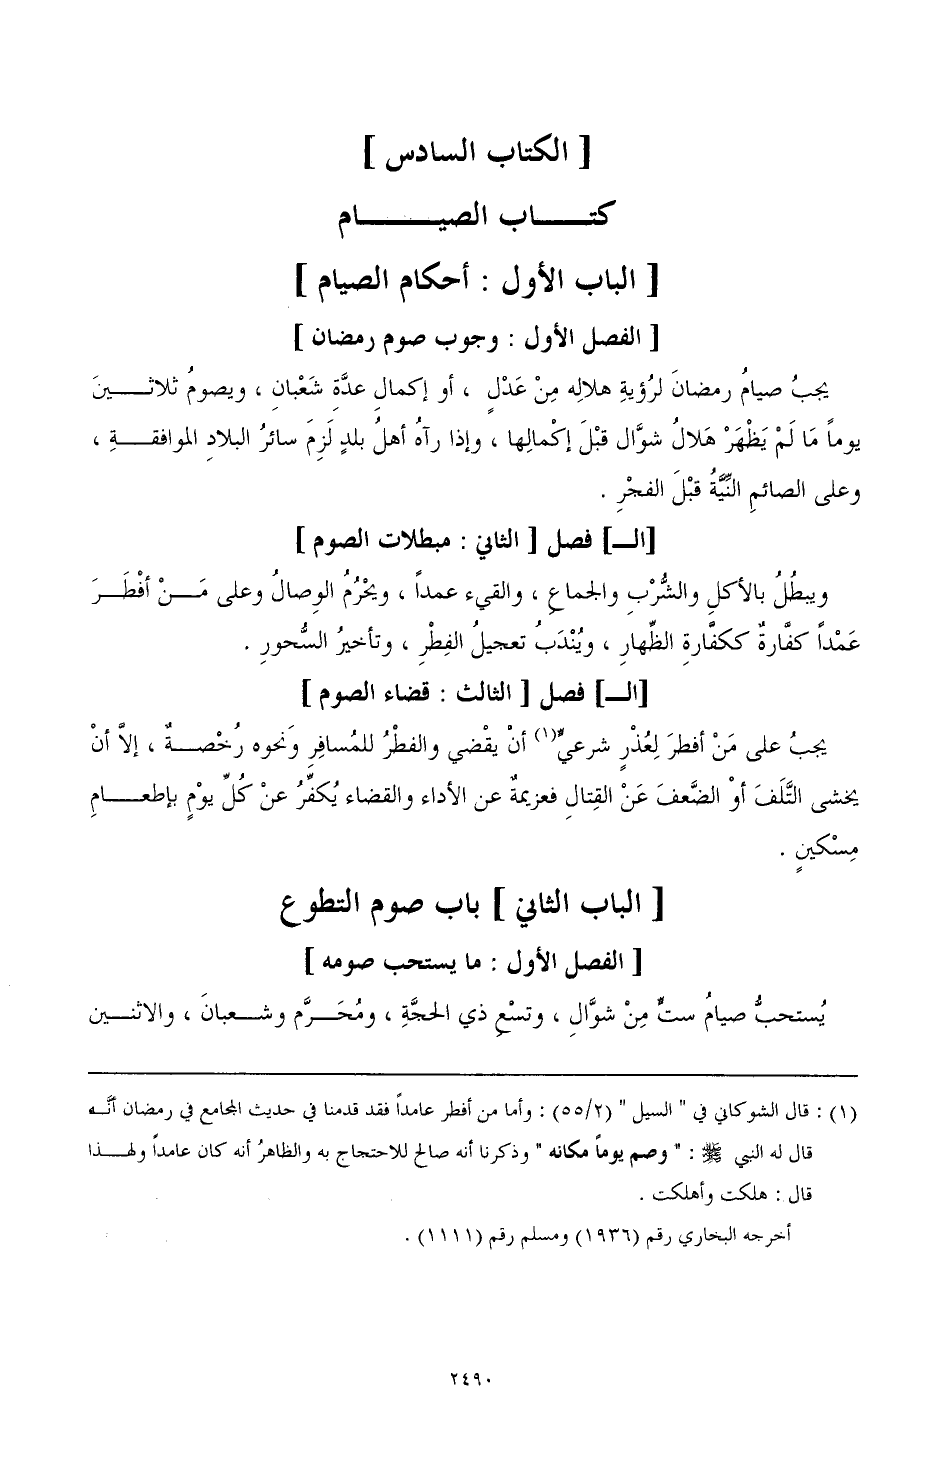 [ الكتاب السادس ]
كتـــاب الصيـــــام
[ الباب الأول : أحكام الصيام ]
[ الفصل الأول : وجوب صوم رمضان ]
يجبُ صيامُ رمضانَ لرُؤيةِ هلالِه مِنْ عَدْلٍ ، أو إكمالِ عدَّة شَعْبان ، ويصومُ ثلاثـــين
يوماً مَا لَمْ يَظْهَرْ هَلالُ شوَّال قبْلَ إكْمالِها ، وإذا رآهُ أهلُ بلدٍ لَزِمَ سائرُ البلادِ الموافقــةِ ،
وعلى الصائمِ النِّيَّةُ قبْلَ الفجْرِ .
[الـ] فصل [ الثاني : مبطلات الصوم ]
ويبطُلُ بالأكلِ والشُّرْبِ والجماعِ ، والقيء عمداً ، ويَحْرُمُ الوِصالُ وعلى مَـــنْ أفْطَــرَ
عَمْداً كفَّارةٌ ككفَّارةِ الظِّهارِ ، ويُنْدَبُ تعجيلُ الفِطْرِ ، وتأخيرُ السُّحورِ .
[الـ] فصل [ الثالث : قضاء الصوم ]
يجبُ على مَنْ أفطرَ لِعُذْرٍ شرعيٍّ(١) أنْ يقْضي والفطْرُ للمُسافِرِ وَنحوه رُخْصــةٌ ، إلاَّ أنْ
يخشى التَّلَفَ أوْ الضَّعفَ عَنْ القِتالِ فعزيمةٌ عن الأداء والقضاء يُكفِّرُ عنْ كُلِّ يوْمٍ بإطعـــامِ
مِسْكينٍ .
[ الباب الثاني ] باب صوم التطوع
[ الفصل الأول : ما يستحب صومه ]
يُستحبُّ صيامُ ستٍّ مِنْ شوَّالِ ، وتسْعِ ذي الحجَّةِ ، ومُحَــرَّم وشــعبانَ ، والاثنــين
(١) : قال الشوكاني في " السيل " (٥٥/٢) : وأما من أفطر عامداً فقد قدمنا في حديث المجامع في رمضان أنَّــه
قال له النبي ﷺ : " وصم يوماً مكانه " وذكرنا أنه صالح للاحتجاج به والظاهرُ أنه كان عامداً ولهــذا
قال : هلكت وأهلكت .
أخرجه البخاري رقم (١٩٣٦) ومسلم رقم (١١١١) .
٢٤٩٠